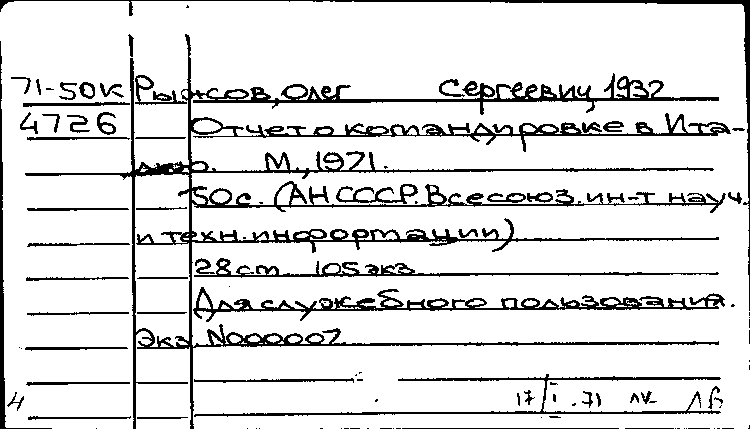 71-50к Рыжов, Олег Сергеевич, 1932
4726 Отчет о командировке в Ита-
лию. М., 1971.
50с. (АН СССР. Всесоюз. ин-т науч.
и техн. информации)
28cm 105 экз
Для служебного пользования.
Экз. N000007
4 17/I.71 ЛВ